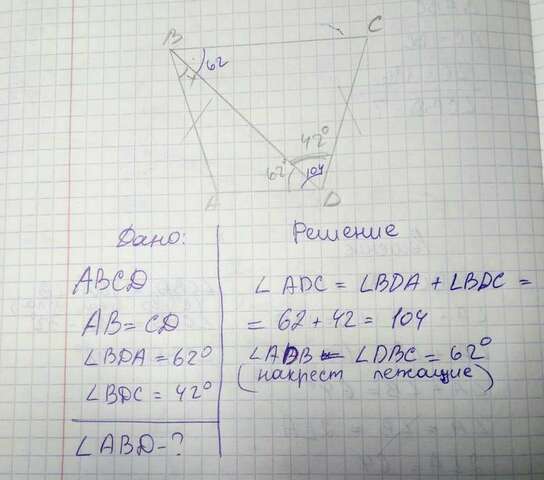 B
C
62
x
42°
62°
104
A
D
Дано:
ABCD
AB = CD
∠BDA = 62°
∠BDC = 42°
∠ABD - ?
Решение
∠ADC = ∠BDA + ∠BDC =
= 62 + 42 = 104
∠ADB = ∠DBC = 62°
(накрест лежащие)